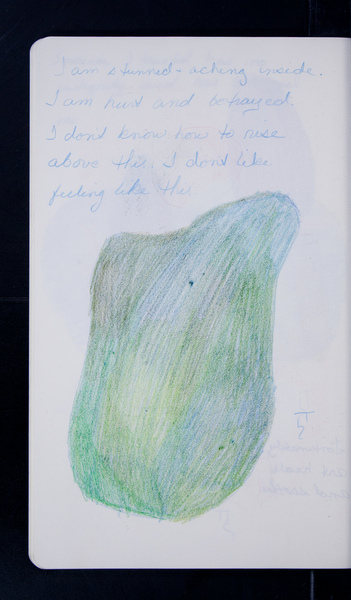 I am stunned - aching inside.
I am hurt and betrayed.
I don't know how to rise
above this. I don't like
feeling like this